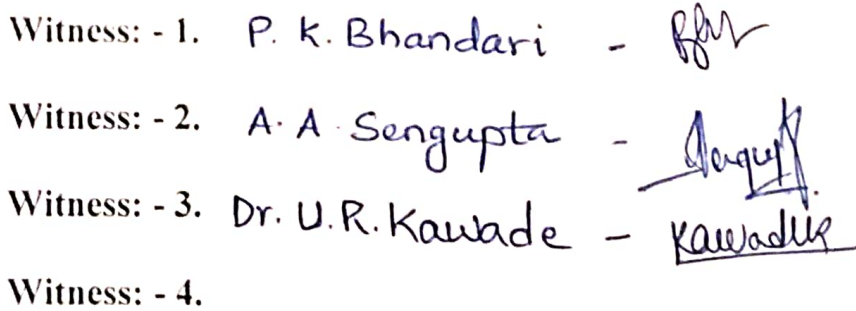 Witness: - 1. P. K. Bhandari -
Witness: - 2. A. A. Sengupta -
Witness: - 3. Dr. U.R. Kawade - Kawade
Witness: - 4.